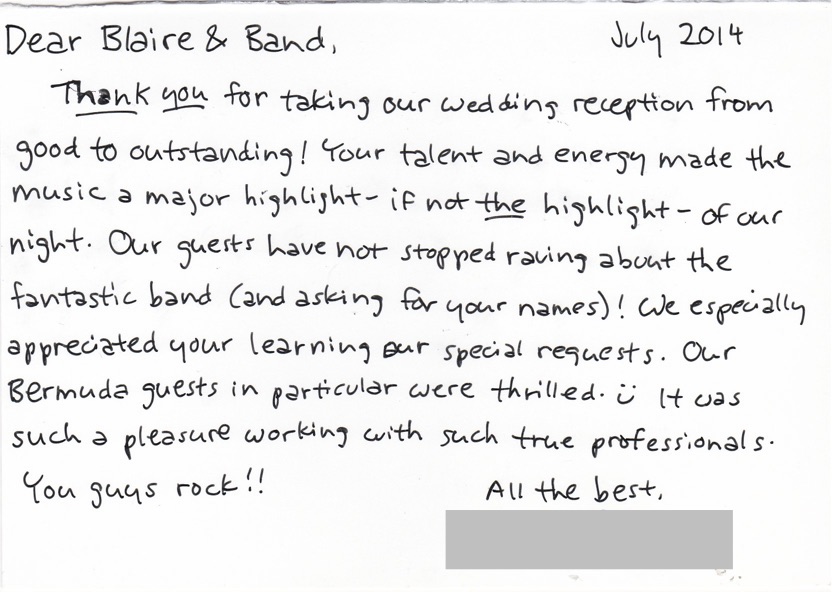 Dear Blaire & Band, July 2014
Thank you for taking our wedding reception from
good to outstanding! Your talent and energy made the
music a major highlight - if not the highlight - of our
night. Our guests have not stopped raving about the
fantastic band (and asking for your names)! We especially
appreciated your learning our special requests. Our
Bermuda guests in particular were thrilled. ü It was
such a pleasure working with such true professionals.
You guys rock!! All the best,